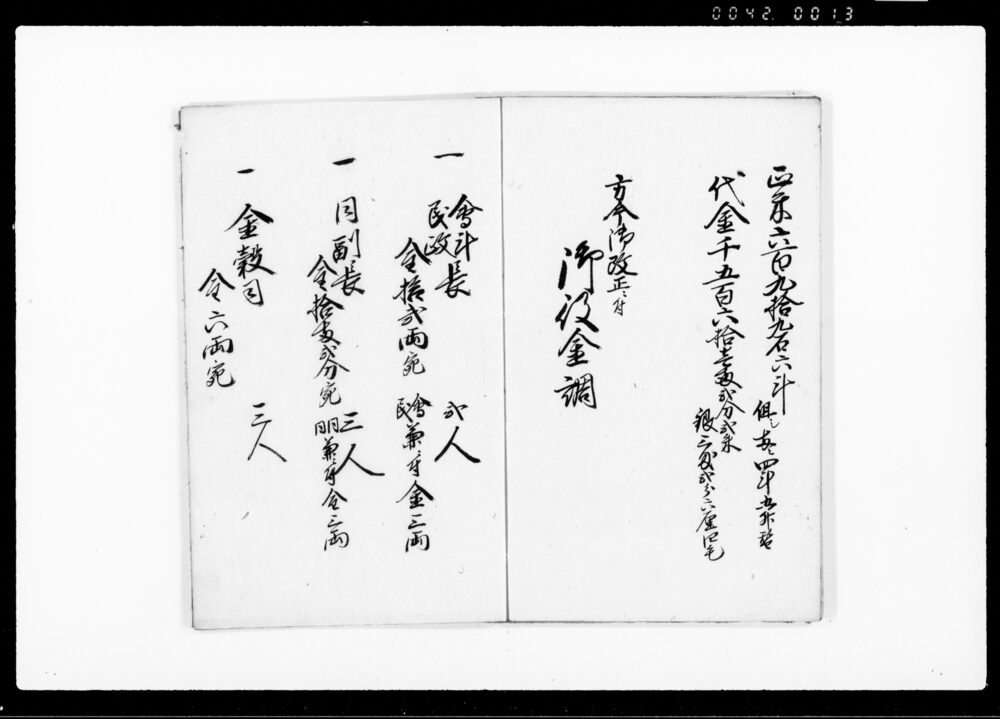 0042.0013
正米六百九拾九石六斗
但し 四斗五升
代金千五百六拾壱両弐分弐朱
銀三匁弐分六厘四毛
方今御改正ニ付
御役金調
一 會計長
民政 弐人
金拾弐両宛
會民兼ニ付金三両
一 同副長 三人
金拾両弐分宛
同兼ニ付金三両
一 金穀司 三人
金六両宛